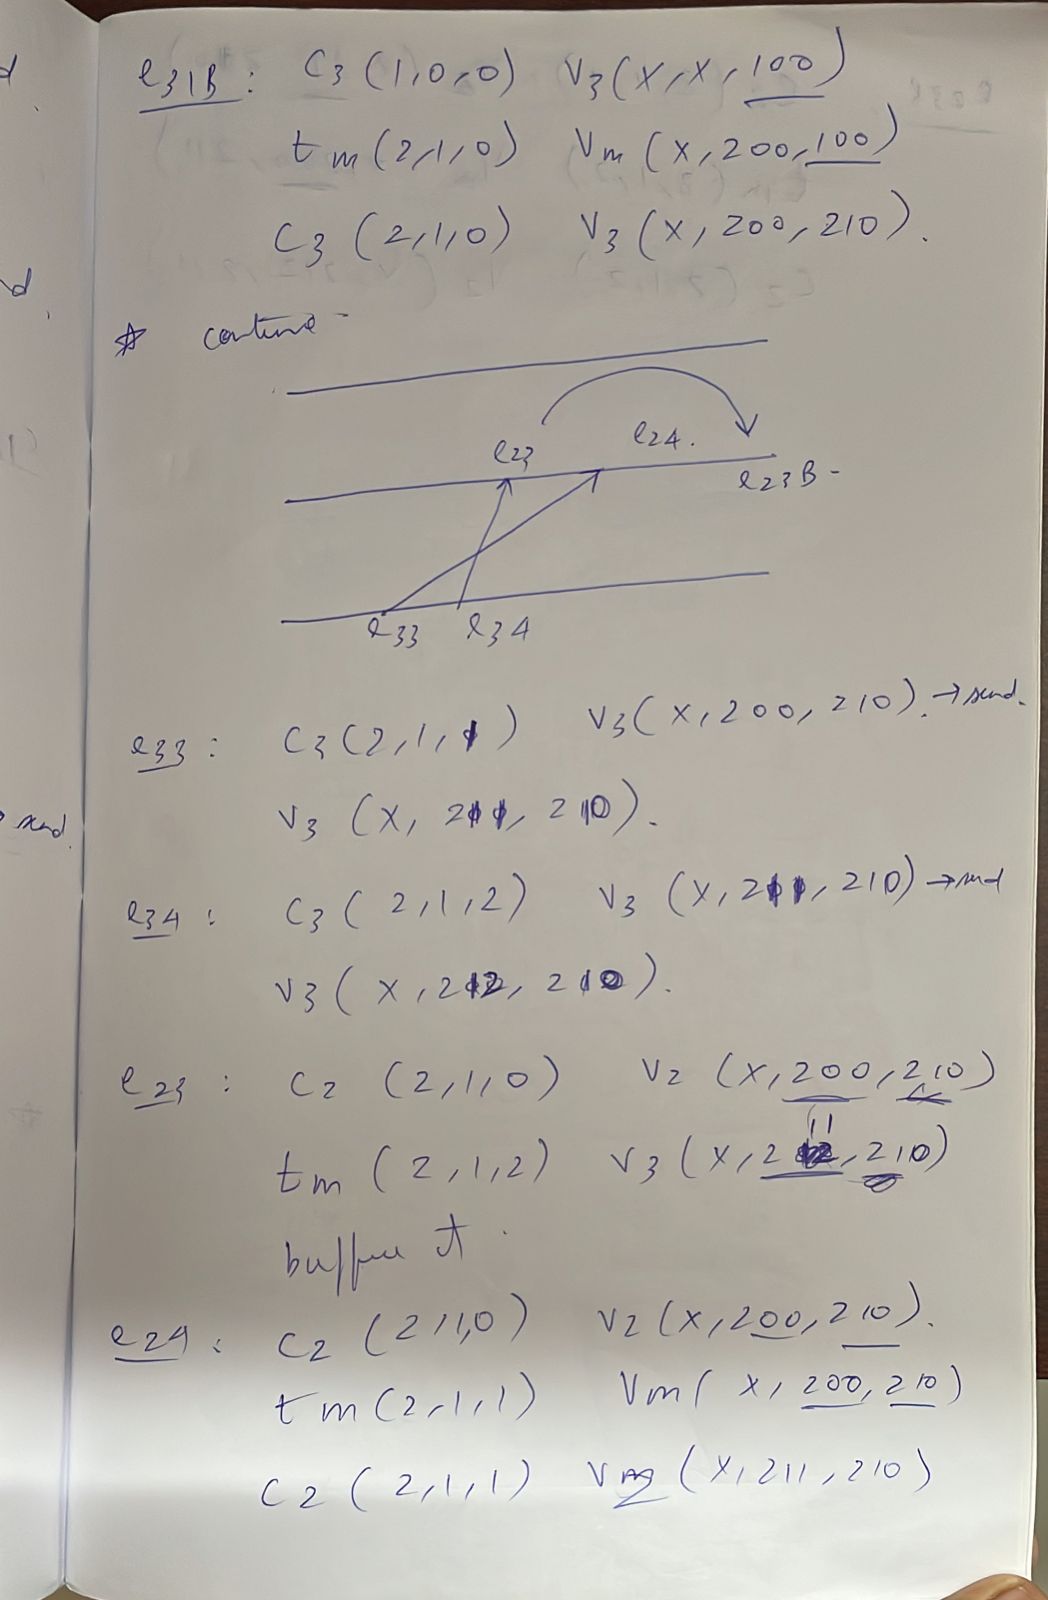 e31B : C3 (1,0,0) V3(X,X,100)
tm(2,1,0) Vm (X,200,100)
C3 (2,1,0) V3(X,200,210).
☆ continue -
e23 e24.
e23B -
e33 e34
e33 : C3(2,1,1) V3(X,200,210). → send.
V3 (X, 211, 210).
send
e34 : C3( 2,1,2) V3 (X,211,210) → send
V3( X,212, 210).
e23 : C2 (2,1,0) V2 (X,200,210)
11
tm (2,1,2) V3(X,2 ,210)
buffer it .
e24 : C2 (2,1,0) V2(X,200,210).
tm(2,1,1) Vm( X, 200,210)
C2 (2,1,1) V2 (X,211,210)